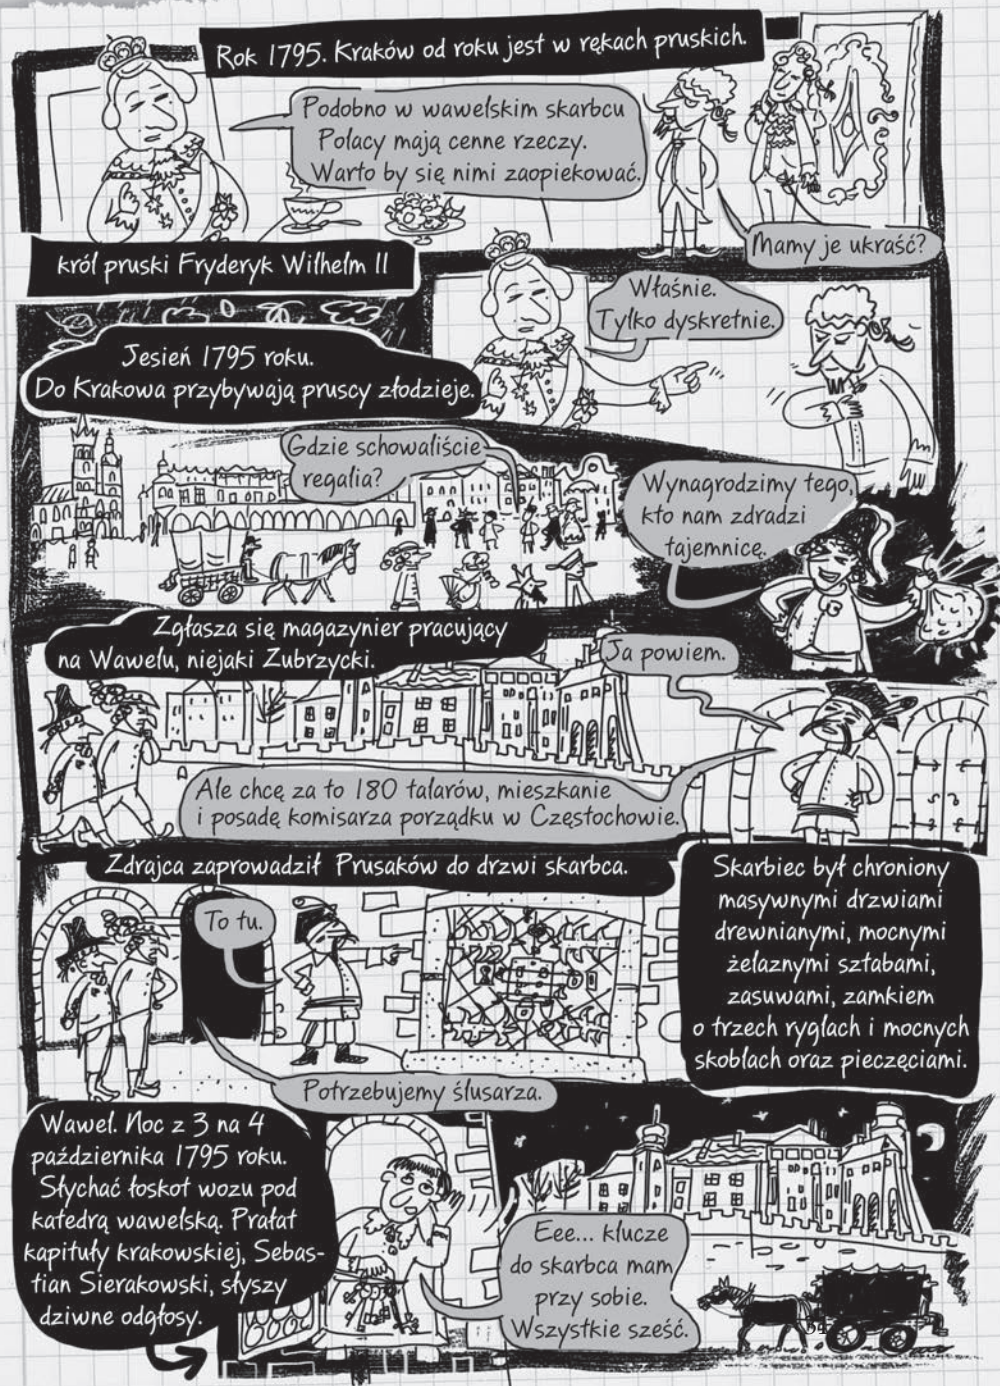 Rok 1795. Kraków od roku jest w rękach pruskich.
Podobno w wawelskim skarbcu
Polacy mają cenne rzeczy.
Warto by się nimi zaopiekować.
Mamy je ukraść?
król pruski Fryderyk Wilhelm II
Właśnie.
Tylko dyskretnie.
Jesień 1795 roku.
Do Krakowa przybywają pruscy złodzieje.
Gdzie schowaliście
regalia?
Wynagrodzimy tego,
kto nam zdradzi
tajemnicę.
Zgłasza się magazynier pracujący
na Wawelu, niejaki Zubrzycki.
Ja powiem.
Ale chcę za to 180 talarów, mieszkanie
i posadę komisarza porządku w Częstochowie.
Zdrajca zaprowadził Prusaków do drzwi skarbca.
To tu.
Skarbiec był chroniony
masywnymi drzwiami
drewnianymi, mocnymi
żelaznymi sztabami,
zasuwami, zamkiem
o trzech ryglach i mocnych
skoblach oraz pieczęciami.
Potrzebujemy ślusarza.
Wawel. Noc z 3 na 4
października 1795 roku.
Słychać łoskot wozu pod
katedrą wawelską. Prałat
kapituły krakowskiej, Sebas-
tian Sierakowski, słyszy
dziwne odgłosy.
Eee... klucze
do skarbca mam
przy sobie.
Wszystkie sześć.